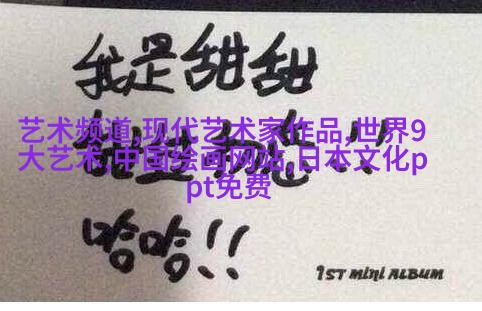 我是甜甜
艺术频道,现代艺术家作品,世界9
大艺术,中国绘画网站,日本文化p
pt免费
哈哈!!
1ST MINI ALBUM